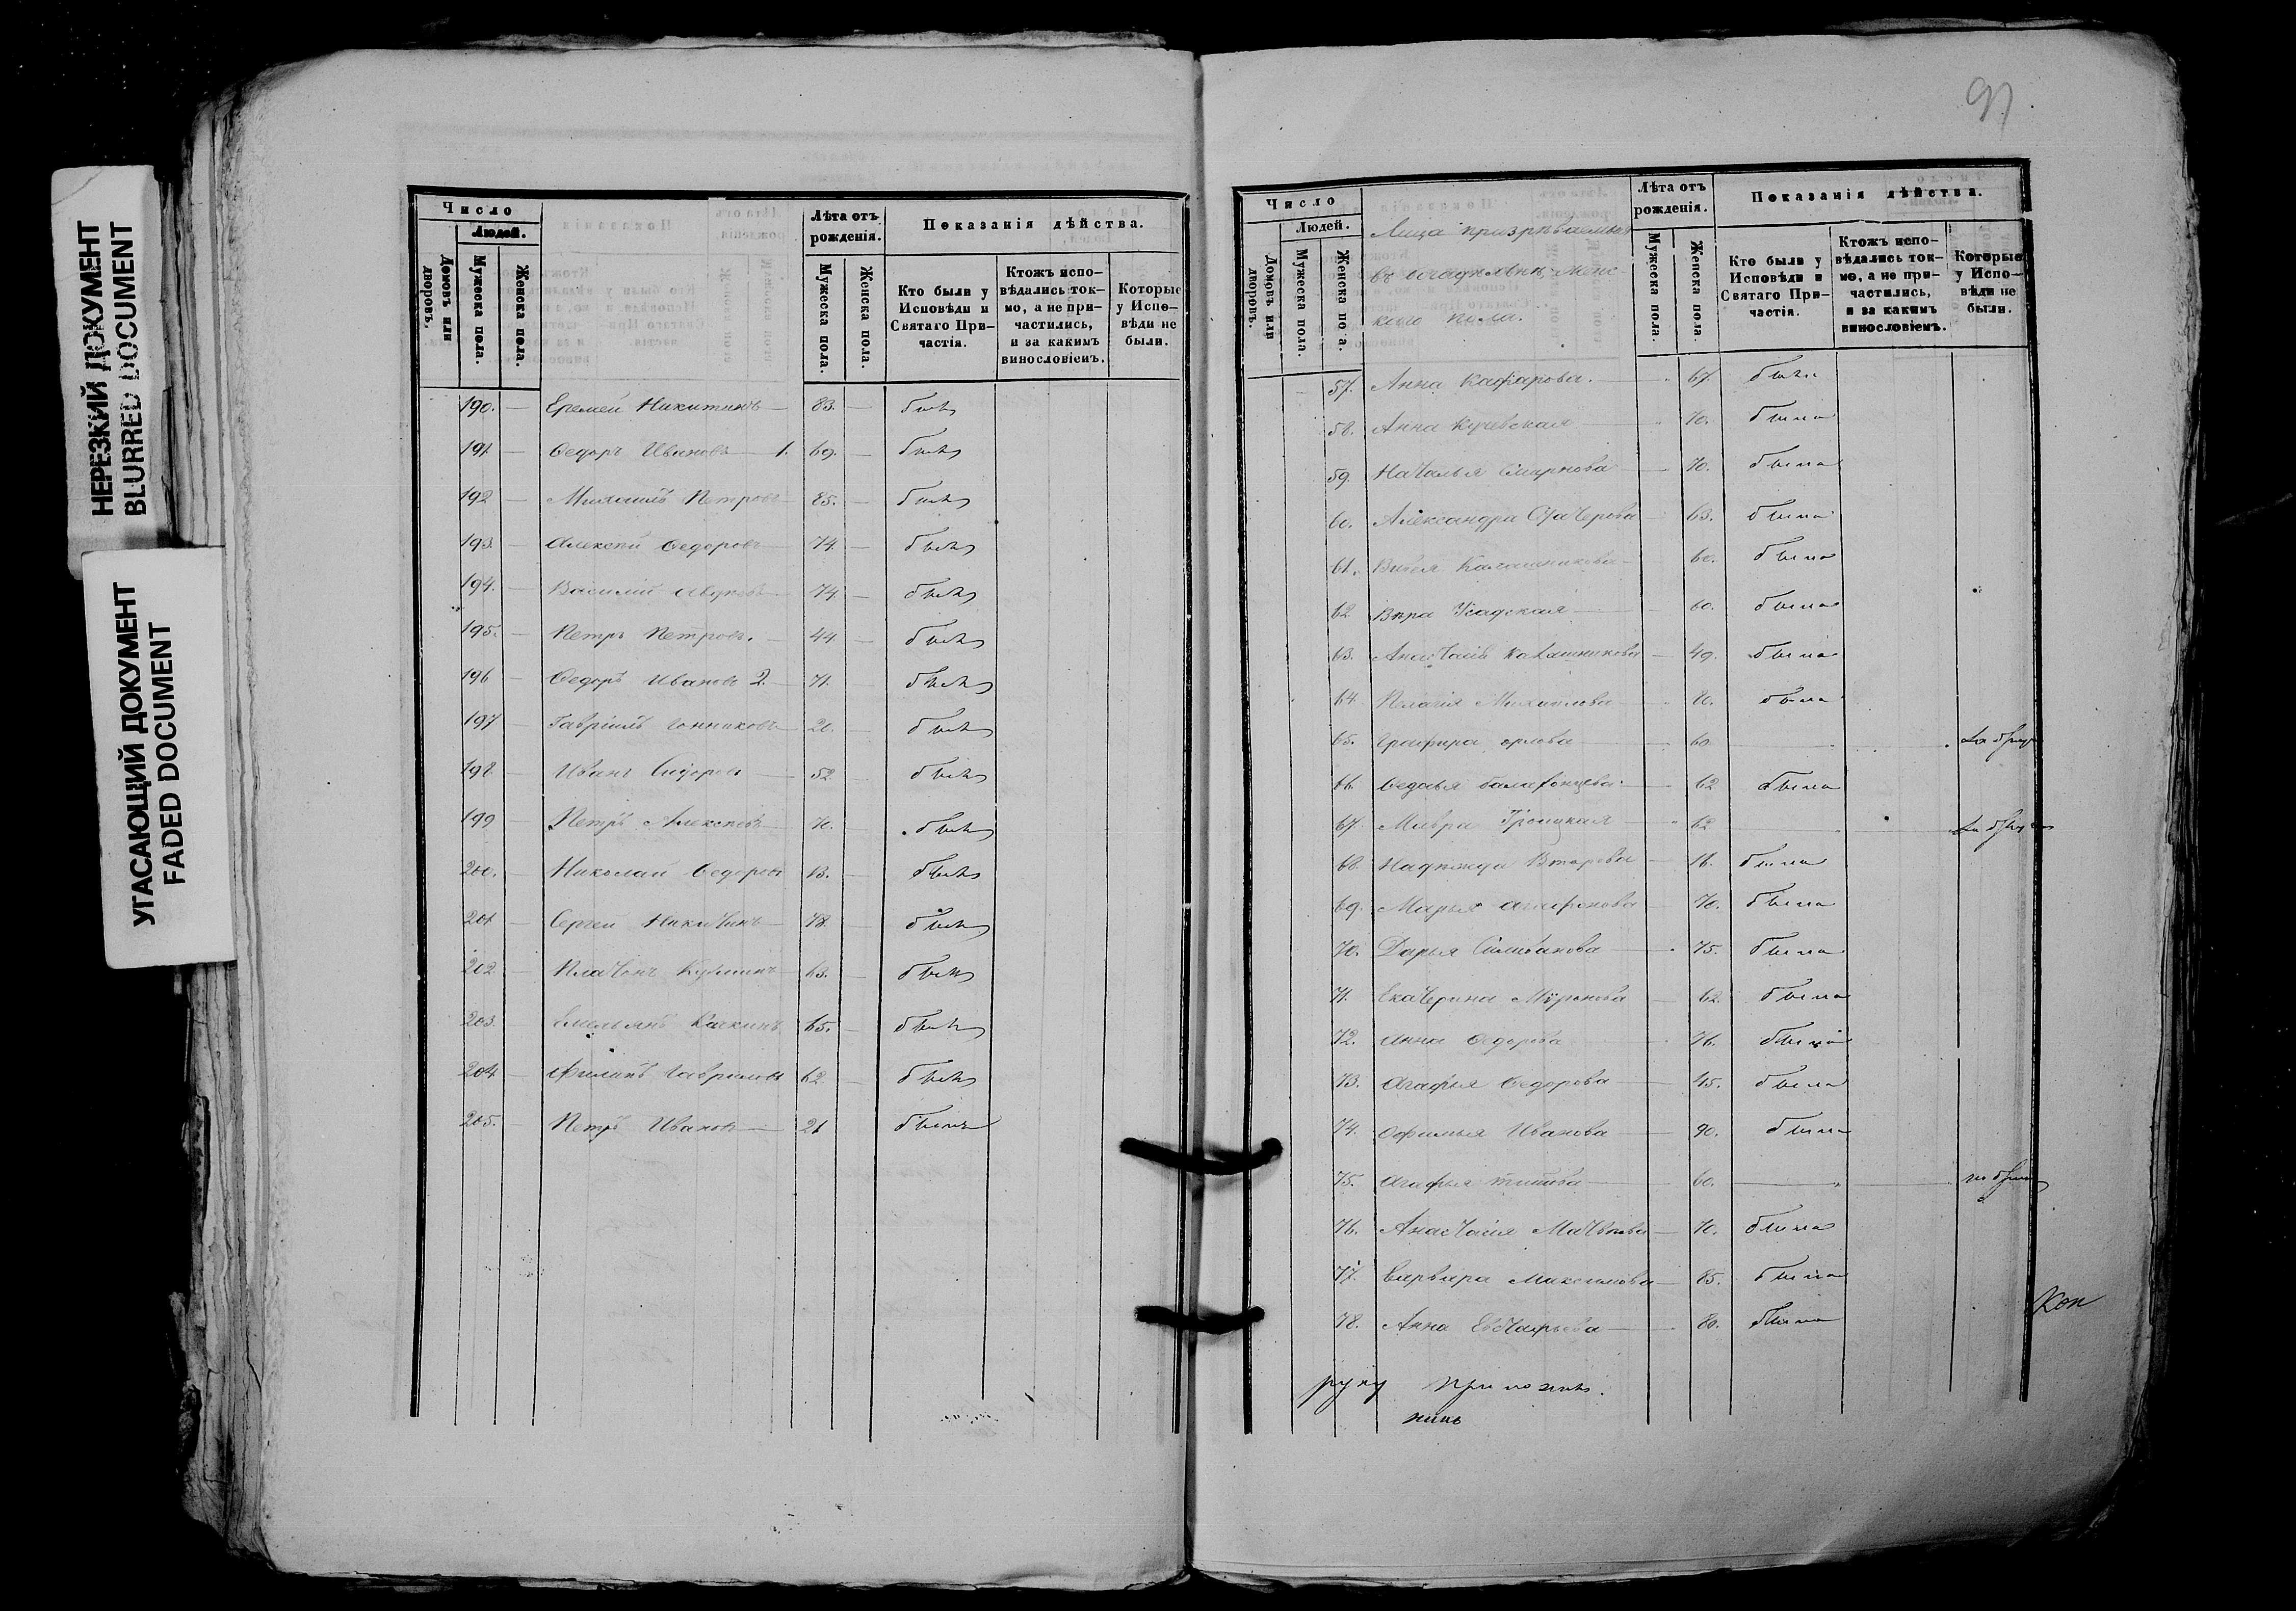 НЕРЕЗКИЙ ДОКУМЕНТ
BLURRED DOCUMENT
УГАСАЮЩИЙ ДОКУМЕНТ
FADED DOCUMENT
Число
Людей.
Домовъ или дворовъ.
Мужеска пола.
Женска пола.
Лѣта отъ рожденія.
Мужеска пола.
Женска пола.
Показанія дѣйства.
Кто были у Исповѣди и Святаго При-частія.
Ктожъ испо-вѣдались ток-мо, а не при-частились, и за какимъ винословіемъ.
Которые у Испо-вѣди не были.
190. — Еремей Никитинъ — 83. — былъ
191 — Ѳедоръ Ивановъ — 1. 69. — былъ
192 — Михаилъ Петровъ — 85. — былъ
193. — Алексѣй Ѳедоровъ — 74. — былъ
194. — Василій — 74. — былъ
195. — Петръ Петровъ. — 44 — былъ
196 — Ѳедоръ Ивановъ 2. — 71. — былъ
197 — Гавріилъ — былъ
198. — Иванъ Сидоровъ — 52 — былъ
199 — Петръ Алексѣевъ — 70. — былъ
200. — Николай Ѳедоровъ — былъ
201 — Сергей Никитинъ — 78. — былъ
202 — Платонъ — 63. — былъ
203. — Емельянъ — 65. — былъ
204 — Филипъ Гавриловъ 62. — былъ
205. — Петръ Ивановъ — 21 былъ
97
Число
Людей.
Домовъ или дворовъ.
Мужеска пола.
Женска пола.
Лица призрѣваемыя
въ богадѣльнѣ женс-
каго пола.
Лѣта отъ рожденія.
Мужеска пола.
Женска пола.
Показанія дѣйства.
Кто были у Исповѣди и Святаго При-частія.
Ктожъ испо-вѣдались ток-мо, а не при-частились, и за какимъ винословіемъ.
Которые у Испо-вѣди не были.
57. Анна Кафарова. — 67. была
58. Анна Кучевская — 70. была
59. Наталья Смирнова — 70. была
60. Александра — 63. была
61. Калашникова — 60. была
62 Вѣра Усадская — 60. была
63. Анастасія Калашникова — 49. была
64. Пелагія Михаилова — была
65. Графира Орлова — 60.
66. Ѳедосья — 62 была
67. Мавра Троицкая — 62
68. Надежда Второва — была
69. Марья Агафонова — 70. была
70. Дарья — 75. была
71. Екатерина Миронова — 62. была
72. Анна Ѳедорова — 76. была
73. Агафья Ѳедорова — 45. была
74. Офимья Иванова — 90. была
75. Агафья Титова — 60.
76. Анастасія Матвѣева — 70. была
77. Варвара Максимова — 85. была
78. Анна Евстафьева — 80. была
Кон
руку приложилъ.